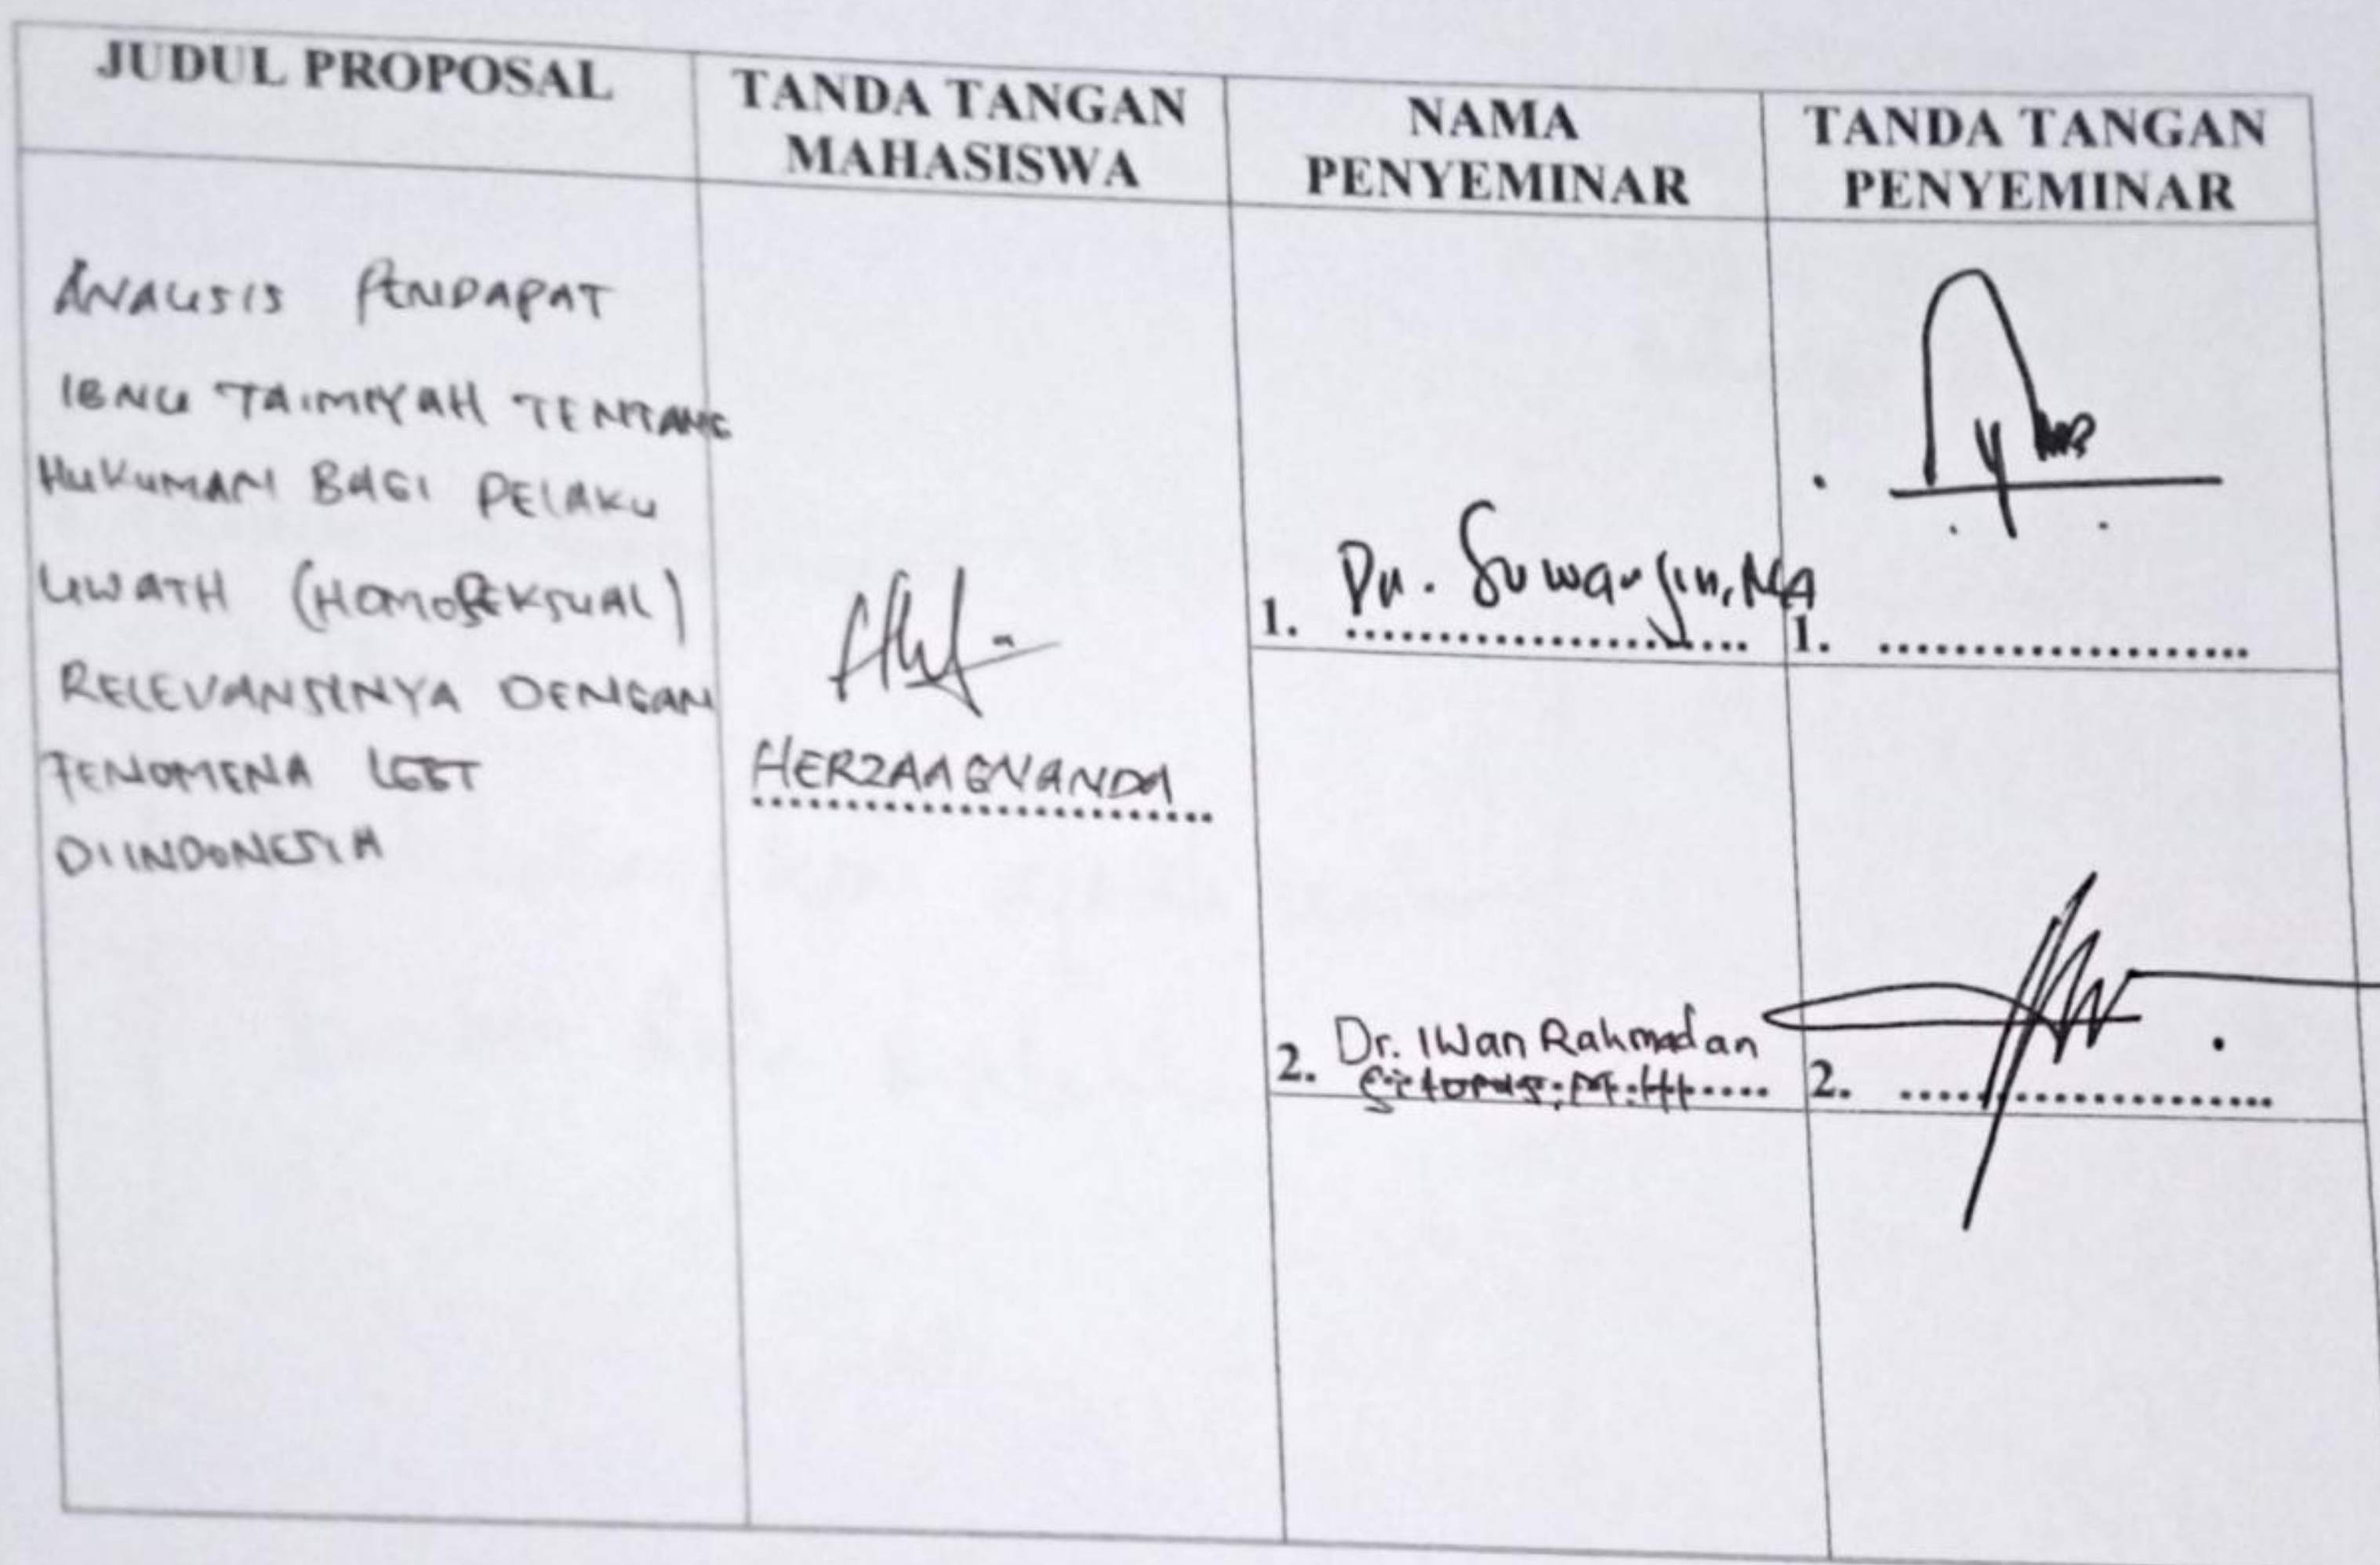 JUDUL PROPOSAL
TANDA TANGAN
MAHASISWA
NAMA
PENYEMINAR
TANDA TANGAN
PENYEMINAR
ANALISIS PENDAPAT
IBNU TAIMIYAH TENTANG
HUKUMAN BAGI PELAKU
LIWATH (HOMOSEKSUAL)
RELEVANSINYA DENGAN
FENOMENA LGBT
DI INDONESIA
HERZA AGNANDA
1. Dr. Suwarjin, MA
1.
2. Dr. Iwan Rahmadan
Sitorus, M.HI
2.